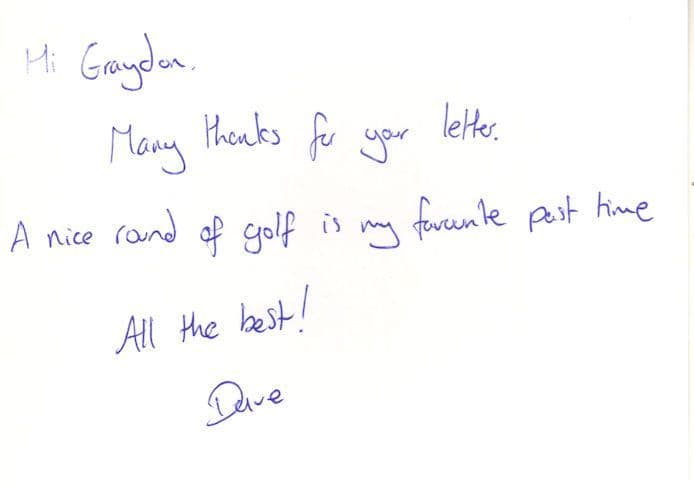 Hi Graydon.
Many thanks for your letter.
A nice round of golf is my favourite past time
All the best!
Dave